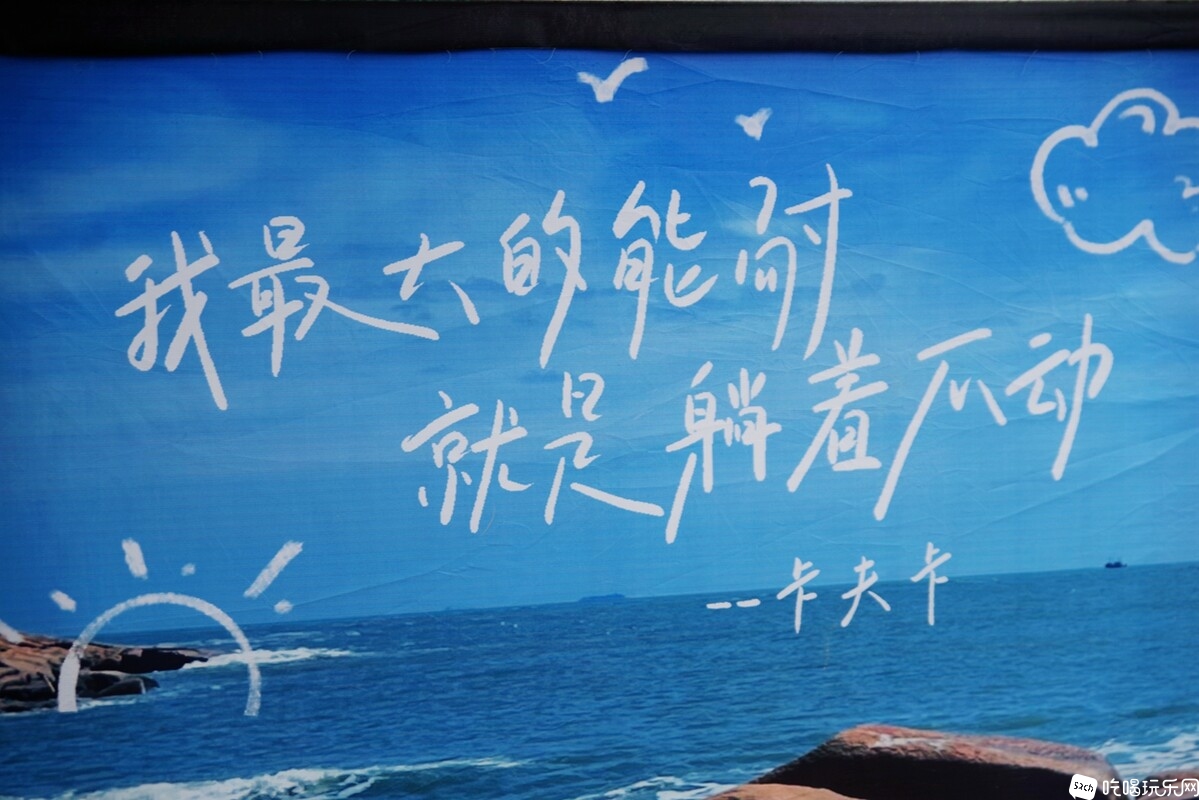 我最大的能耐
就是躺着不动
--卡夫卡
Sach 吃喝玩乐网